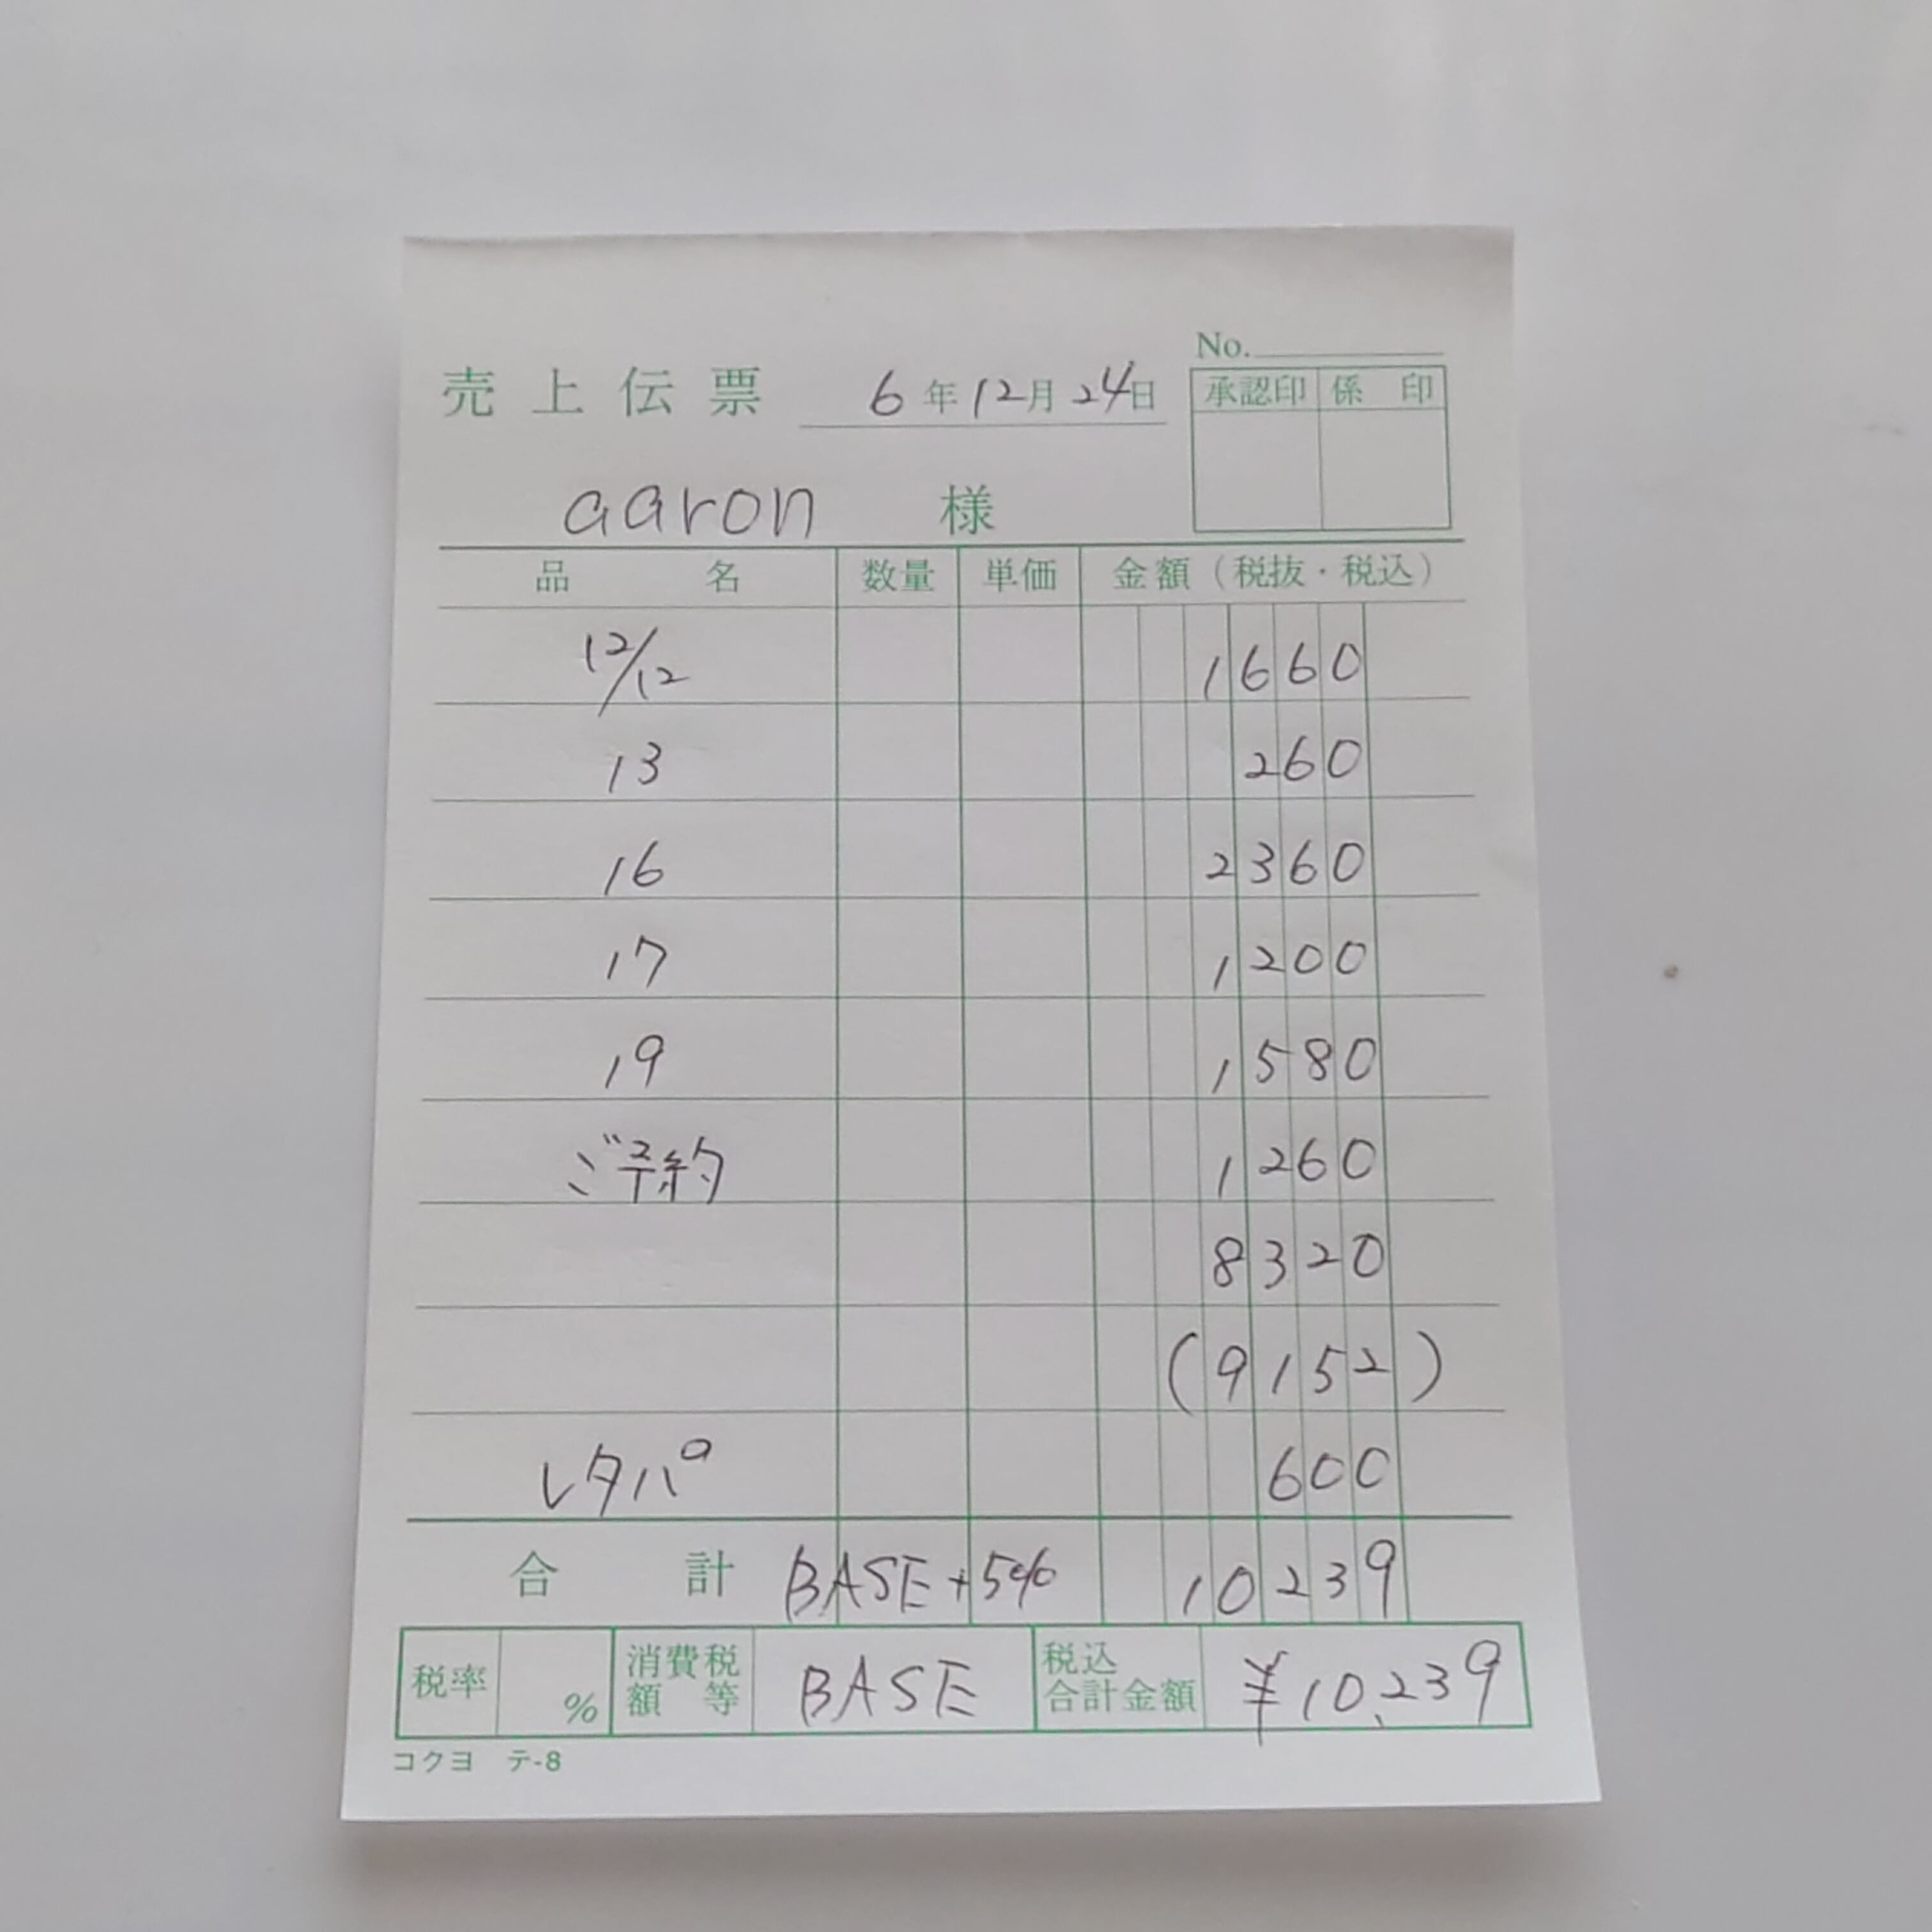 No.
売上伝票 6年12月24日
承認印 係印
aaron 様
品名 数量 単価 金額（税抜・税込）
12/12 1660
13 260
16 2360
17 1200
19 1580
ご予約 1260
8320
(9152)
レタパ 600
合計 BASE+5% 10239
税率 % 消費税額等 BASE 税込合計金額 ¥10,239
コクヨ テ-8